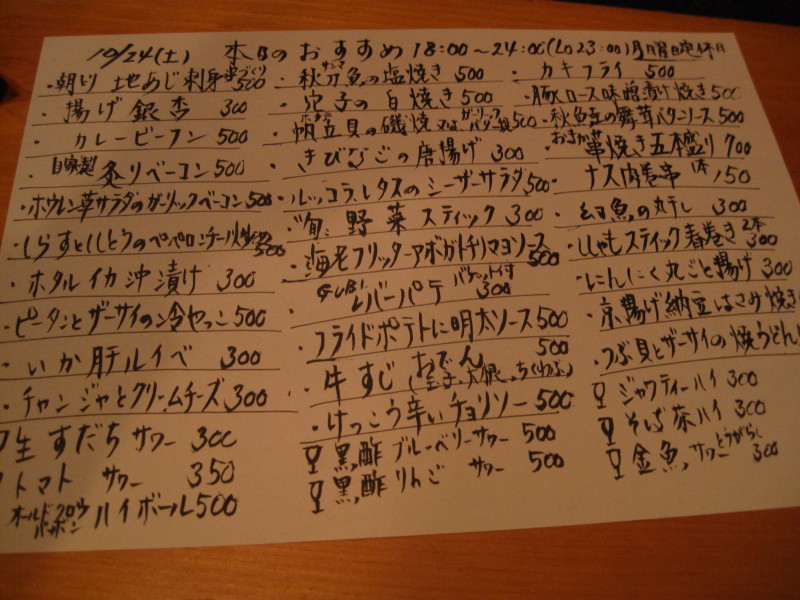 10/24(土) 本日のおすすめ 18:00〜24:00(Lo23:00)
・朝どり 地あじ刺身 500
・揚げ銀杏 300
・カレービーフン 500
・自家製 炙りベーコン 500
・ホウレン草サラダのガーリックベーコン 500
・しらすとししとうのペペロンチーノ 500
・ホタルイカ沖漬け 300
・ピータンとザーサイの冷やっこ 500
・いか肝ルイベ 300
・チャンジャとクリームチーズ 300
生すだちサワー 300
トマトサワー 350
オールドクロウ バーボン ハイボール 500
・秋刀魚の塩焼き 500
サンマ
・穴子の白焼き 500
・帆立貝の磯焼 又は ガーリックバター焼 500
ホタテ
・きびなごの唐揚げ 300
・ルッコラ、レタスのシーザーサラダ 500
・旬、野菜スティック 300
・海老フリッターアボガドチリマヨソース 500
・レバーパテ 300
バケット付
・フライドポテトに明太ソース 500
・牛すじおでん 500
(玉子、大根、ちくわぶ)
・けっこう辛いチョリソー 500
黒酢ブルーベリーサワー 500
黒酢りんごサワー 500
・カキフライ 500
・豚ロース味噌漬け焼き 500
・秋魚圭の舞茸バターソース 500
・おまかせ 串焼き五本盛り 700
・ナス肉巻串 1本 150
・幻魚の丸干し 300
・ししゃもスティック春巻き 2本 300
・にんにく丸ごと揚げ 300
・京揚げ納豆はさみ焼き
・つぶ貝とザーサイの焼うどん
ジャワティーハイ 300
そば茶ハイ 300
金魚サワー とうがらし 300